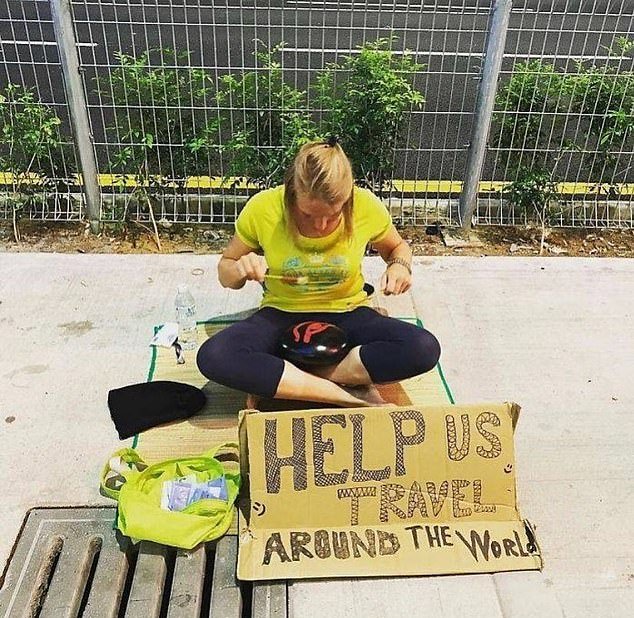 HELP US
TRAVEL
AROUND THE WORLD